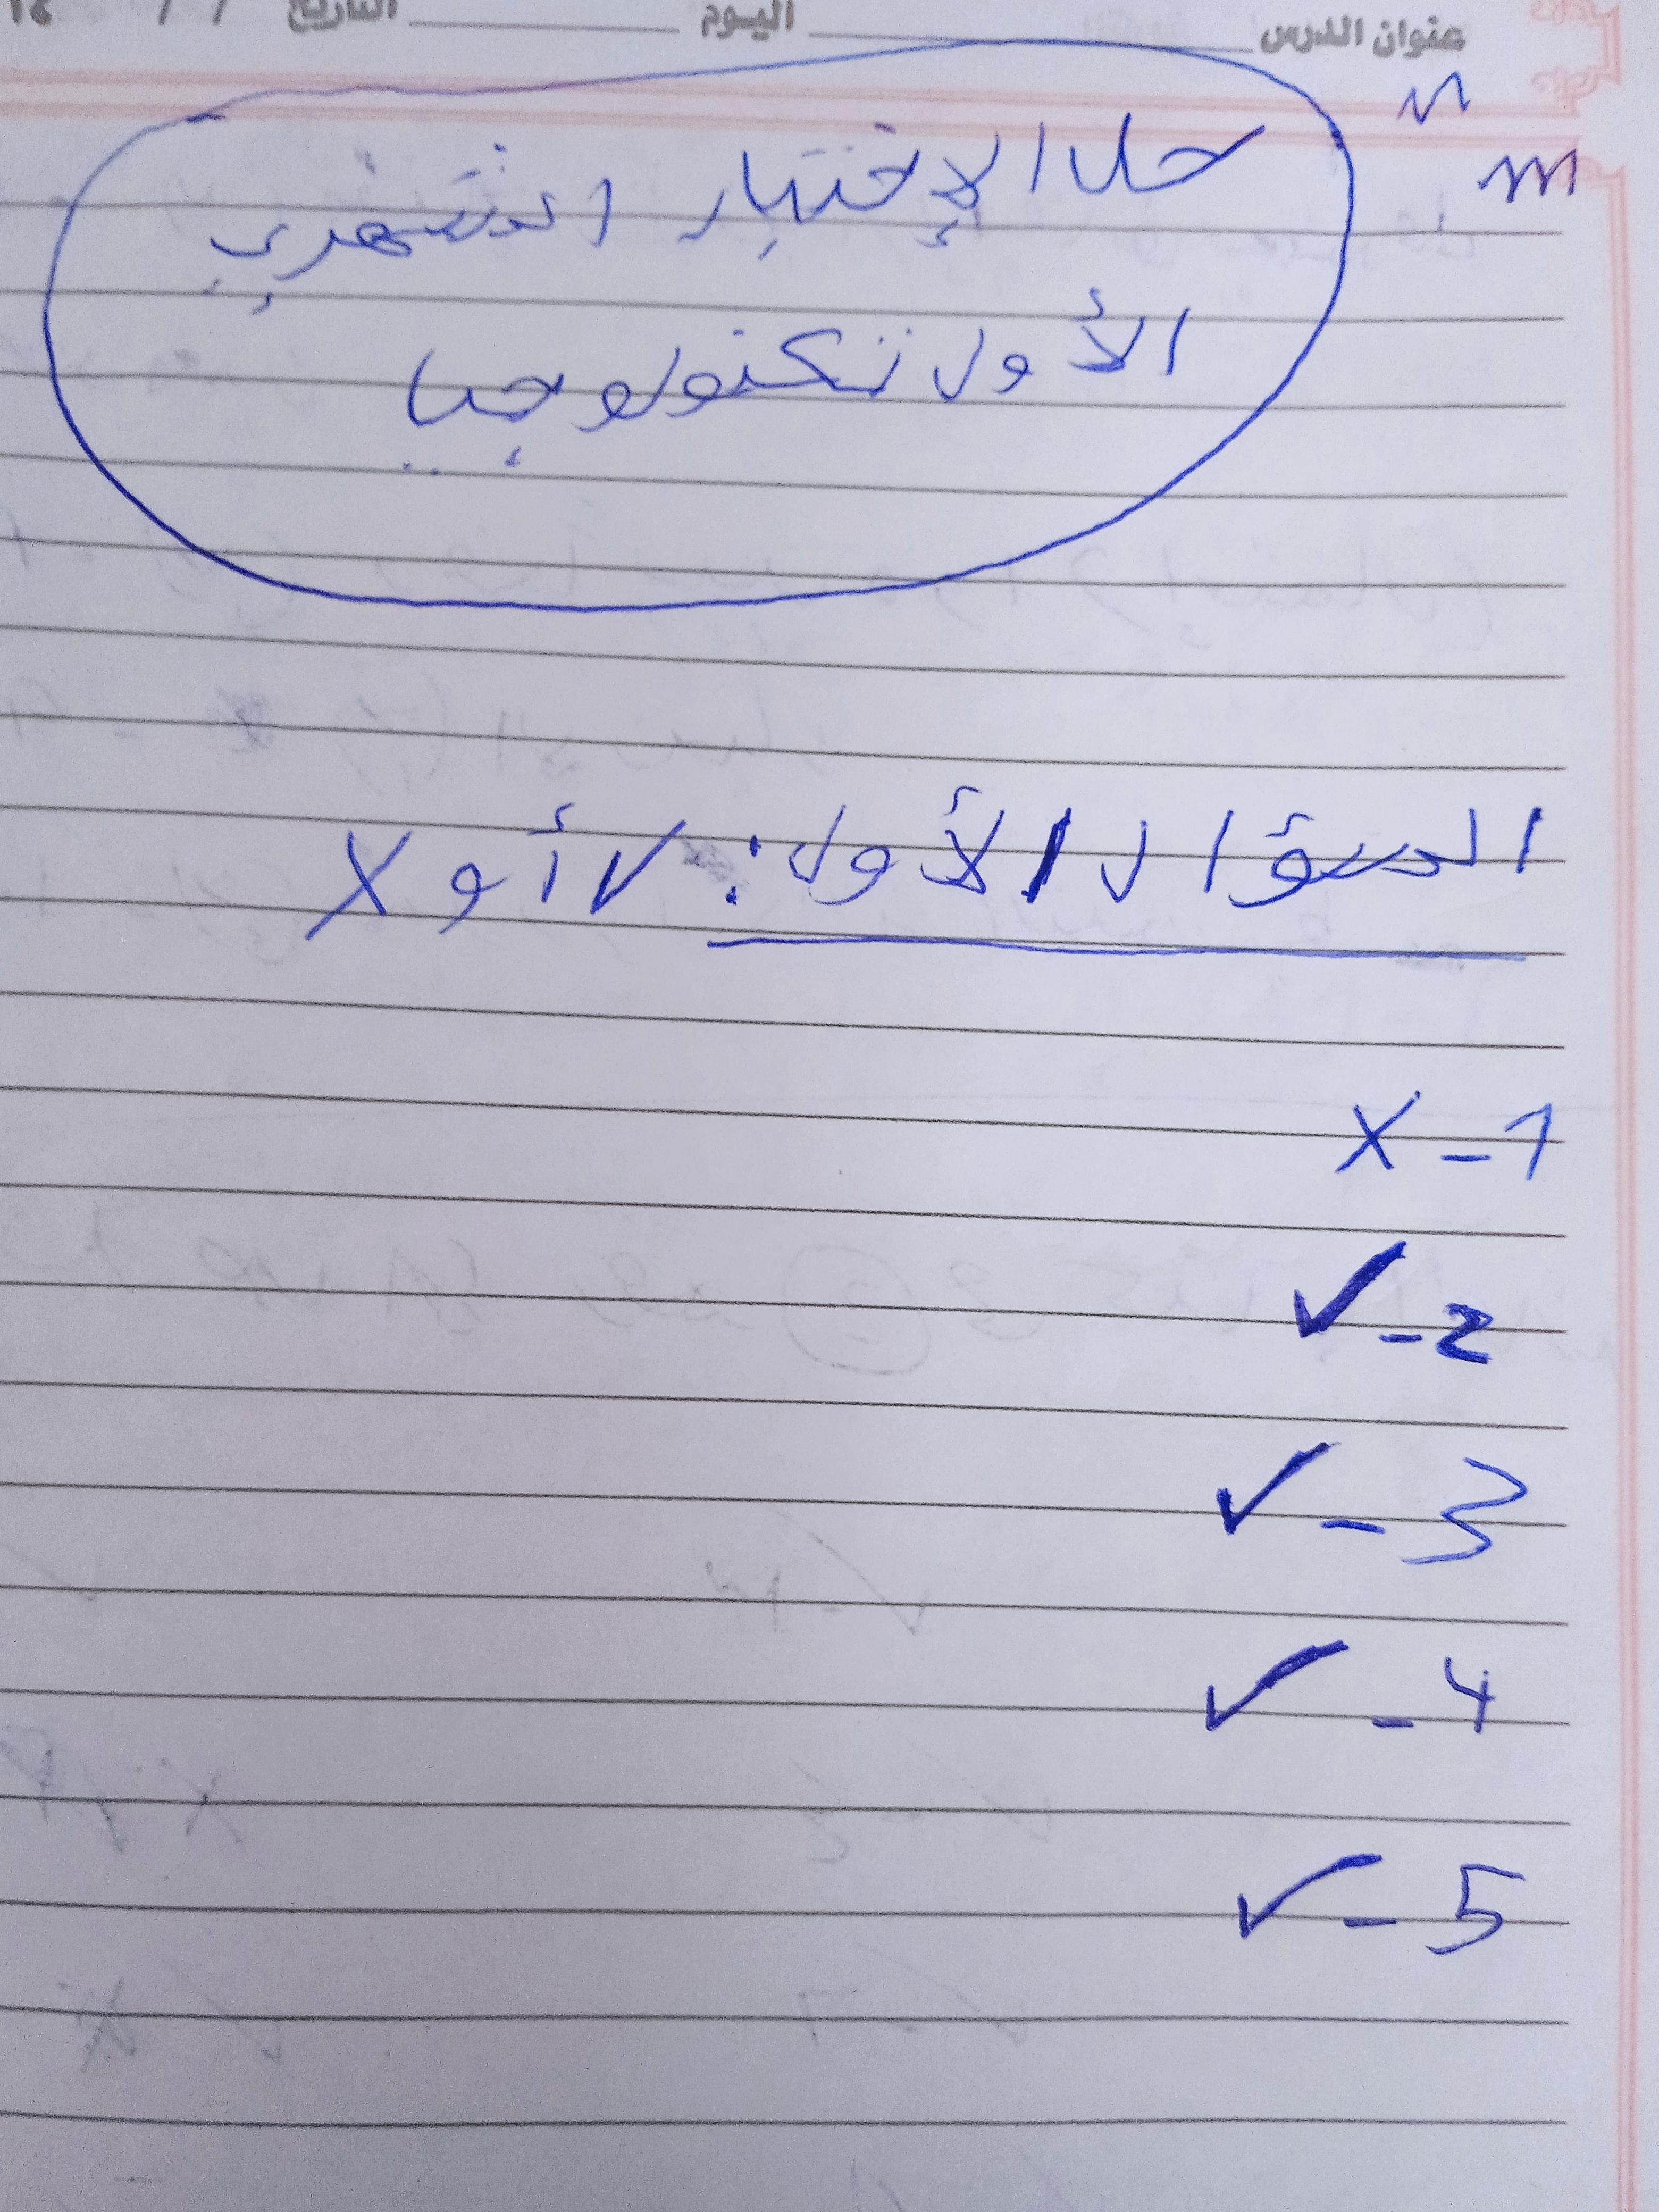 عنوان الدرس ____________ اليوم ____________ التاريخ / /
حل الإختبار الشهري
الأول تكنولوجيا
السؤال الأول: ✓ أو X
1 - X
2 - ✓
3 - ✓
4 - ✓
5 - ✓